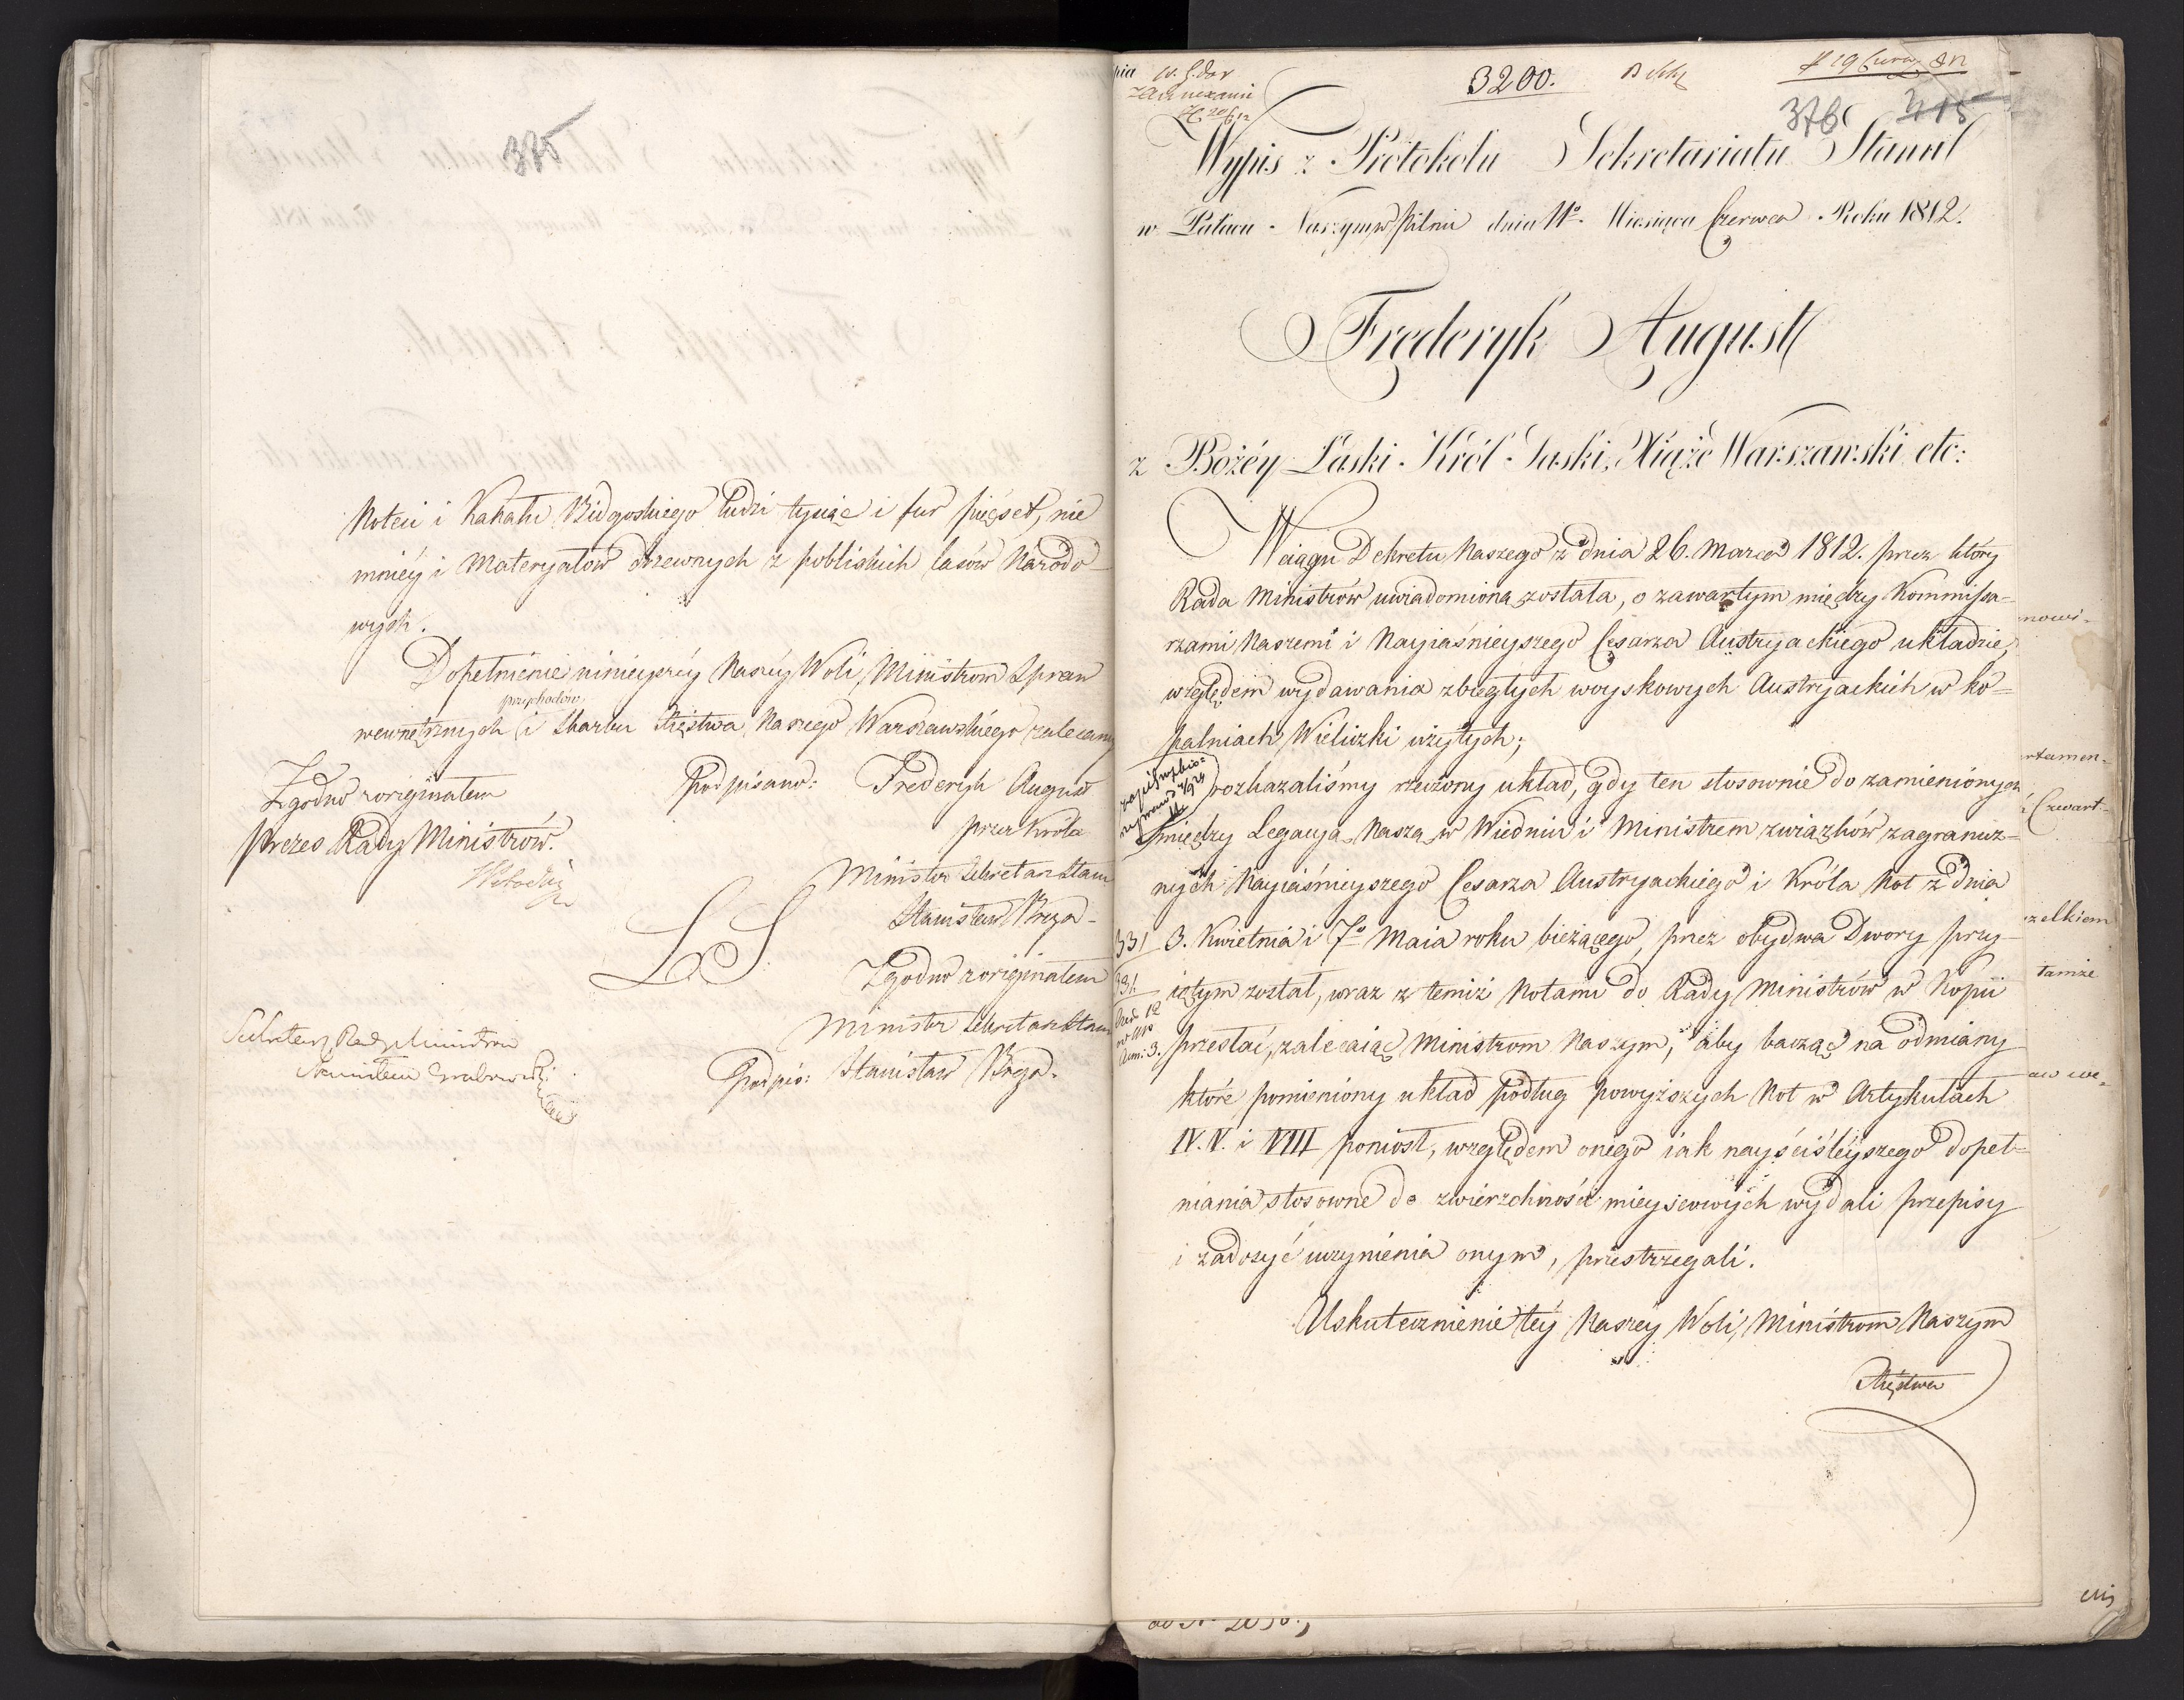 375
Noteci i Kanału Bidgoskiego ludzi tysiąc i fur pięćset, nie
mniéy i Materyałów drzewnych z pobliskich lasów Narodo
wych.
Dopełnienie ninieyszéy Naszéy Woli, Ministrom Spraw
przychodów
wewnętrznych i Skarbu Xięstwa Naszego Warszawskiego zalecamy
Zgodno z originałem
Podpisano: Frederyk August
Prezes Rady Ministrów.
przez Króla
Minister Sekretarz Stanu
Stanisław Breza
LS
Zgodno z originałem
Minister Sekretarz Stanu
Podpis: Stanisław Breza.
Sekretarz Rady Ministrów
Stanisław Grabowski
3200.
376 415
Wypis z Protokołu Sekretariatu Stanu
w Pałacu Naszym w Pilnia dnia 11o Miesiąca Czerwca Roku 1812.
Frederyk August
z Bożéy Łaski Król Saski, Xiąże Warszawski etc:
W ciągu Dekretu Naszego z dnia 26. Marca 1812. przez który
Rada Ministrów uwiadomiona została, o zawartym między Kommissa-
rzami Naszemi i Nayiaśnieyszego Cesarza Austryackiego układzie,
względem wydawania zbiegłych woyskowych Austryackich w ko-
palniach Wieliczki użytych;
rozkazaliśmy rzeczony układ, gdy ten stosownie do zamienionych
między Legacyą Naszą w Wiedniu i Ministrem związków zagranicz-
nych Nayiaśnieyszego Cesarza Austryackiego i Króla Not z dnia
331 3. Kwietnia i 7o Maia roku bieżącego, przez obydwa Dwory przy-
iętym został, wraz z temiż Notami do Rady Ministrów w Kopii
przesłać, zalecaiąc Ministrom Naszym, aby bacząc na odmiany
które pomieniony układ podług powyższych Not w Artykułach
IV. V. i VIII poniósł, względem onego iak nayściśleyszego dopeł-
niania stosowne do zwierzchności mieyscowych wydali przepisy
i zadosyć uczynienia onym, przestrzegali.
Uskutecznienie téy Naszéy Woli, Ministrom Naszym
Xięstwa
nowi-
rtamen-
Czwart-
zelkiem
tamże
aw we-